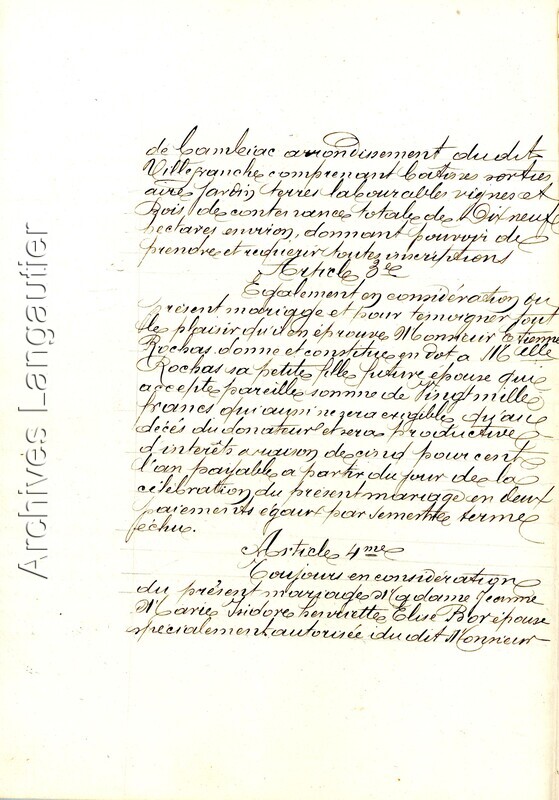 de Cambiac arrondissement du dit
Villefranche comprenant batisses sorties
aire Jardin terres labourables vignes et
Bois de contenance totale de Dix neuf
hectares environ, donnant pouvoir de
prendre et requérir toutes inscriptions
Article 3e
Egalement en considération du
présent mariage et pour témoigner tout
le plaisir qu'il en éprouve Monsieur Etienne
Rochas donne et constitue en dot a Melle
Rochas sa petite fille future épouse qui
accepte pareille somme de Vingt mille
francs qui aussi ne sera exigible qu'au
décès du donateur et sera productive
d'intérêts a raison de cinq pour cent
l'an payable a partir du jour de la
célébration du présent mariage en deux
paiements égaux par semestre terme
échu.
Article 4me
Toujours en considération
du présent mariage Madame Jeanne
Marie Isidore henriette Elise Bor épouse
spécialement autorisée du dit Monsieur
Archives Langautier